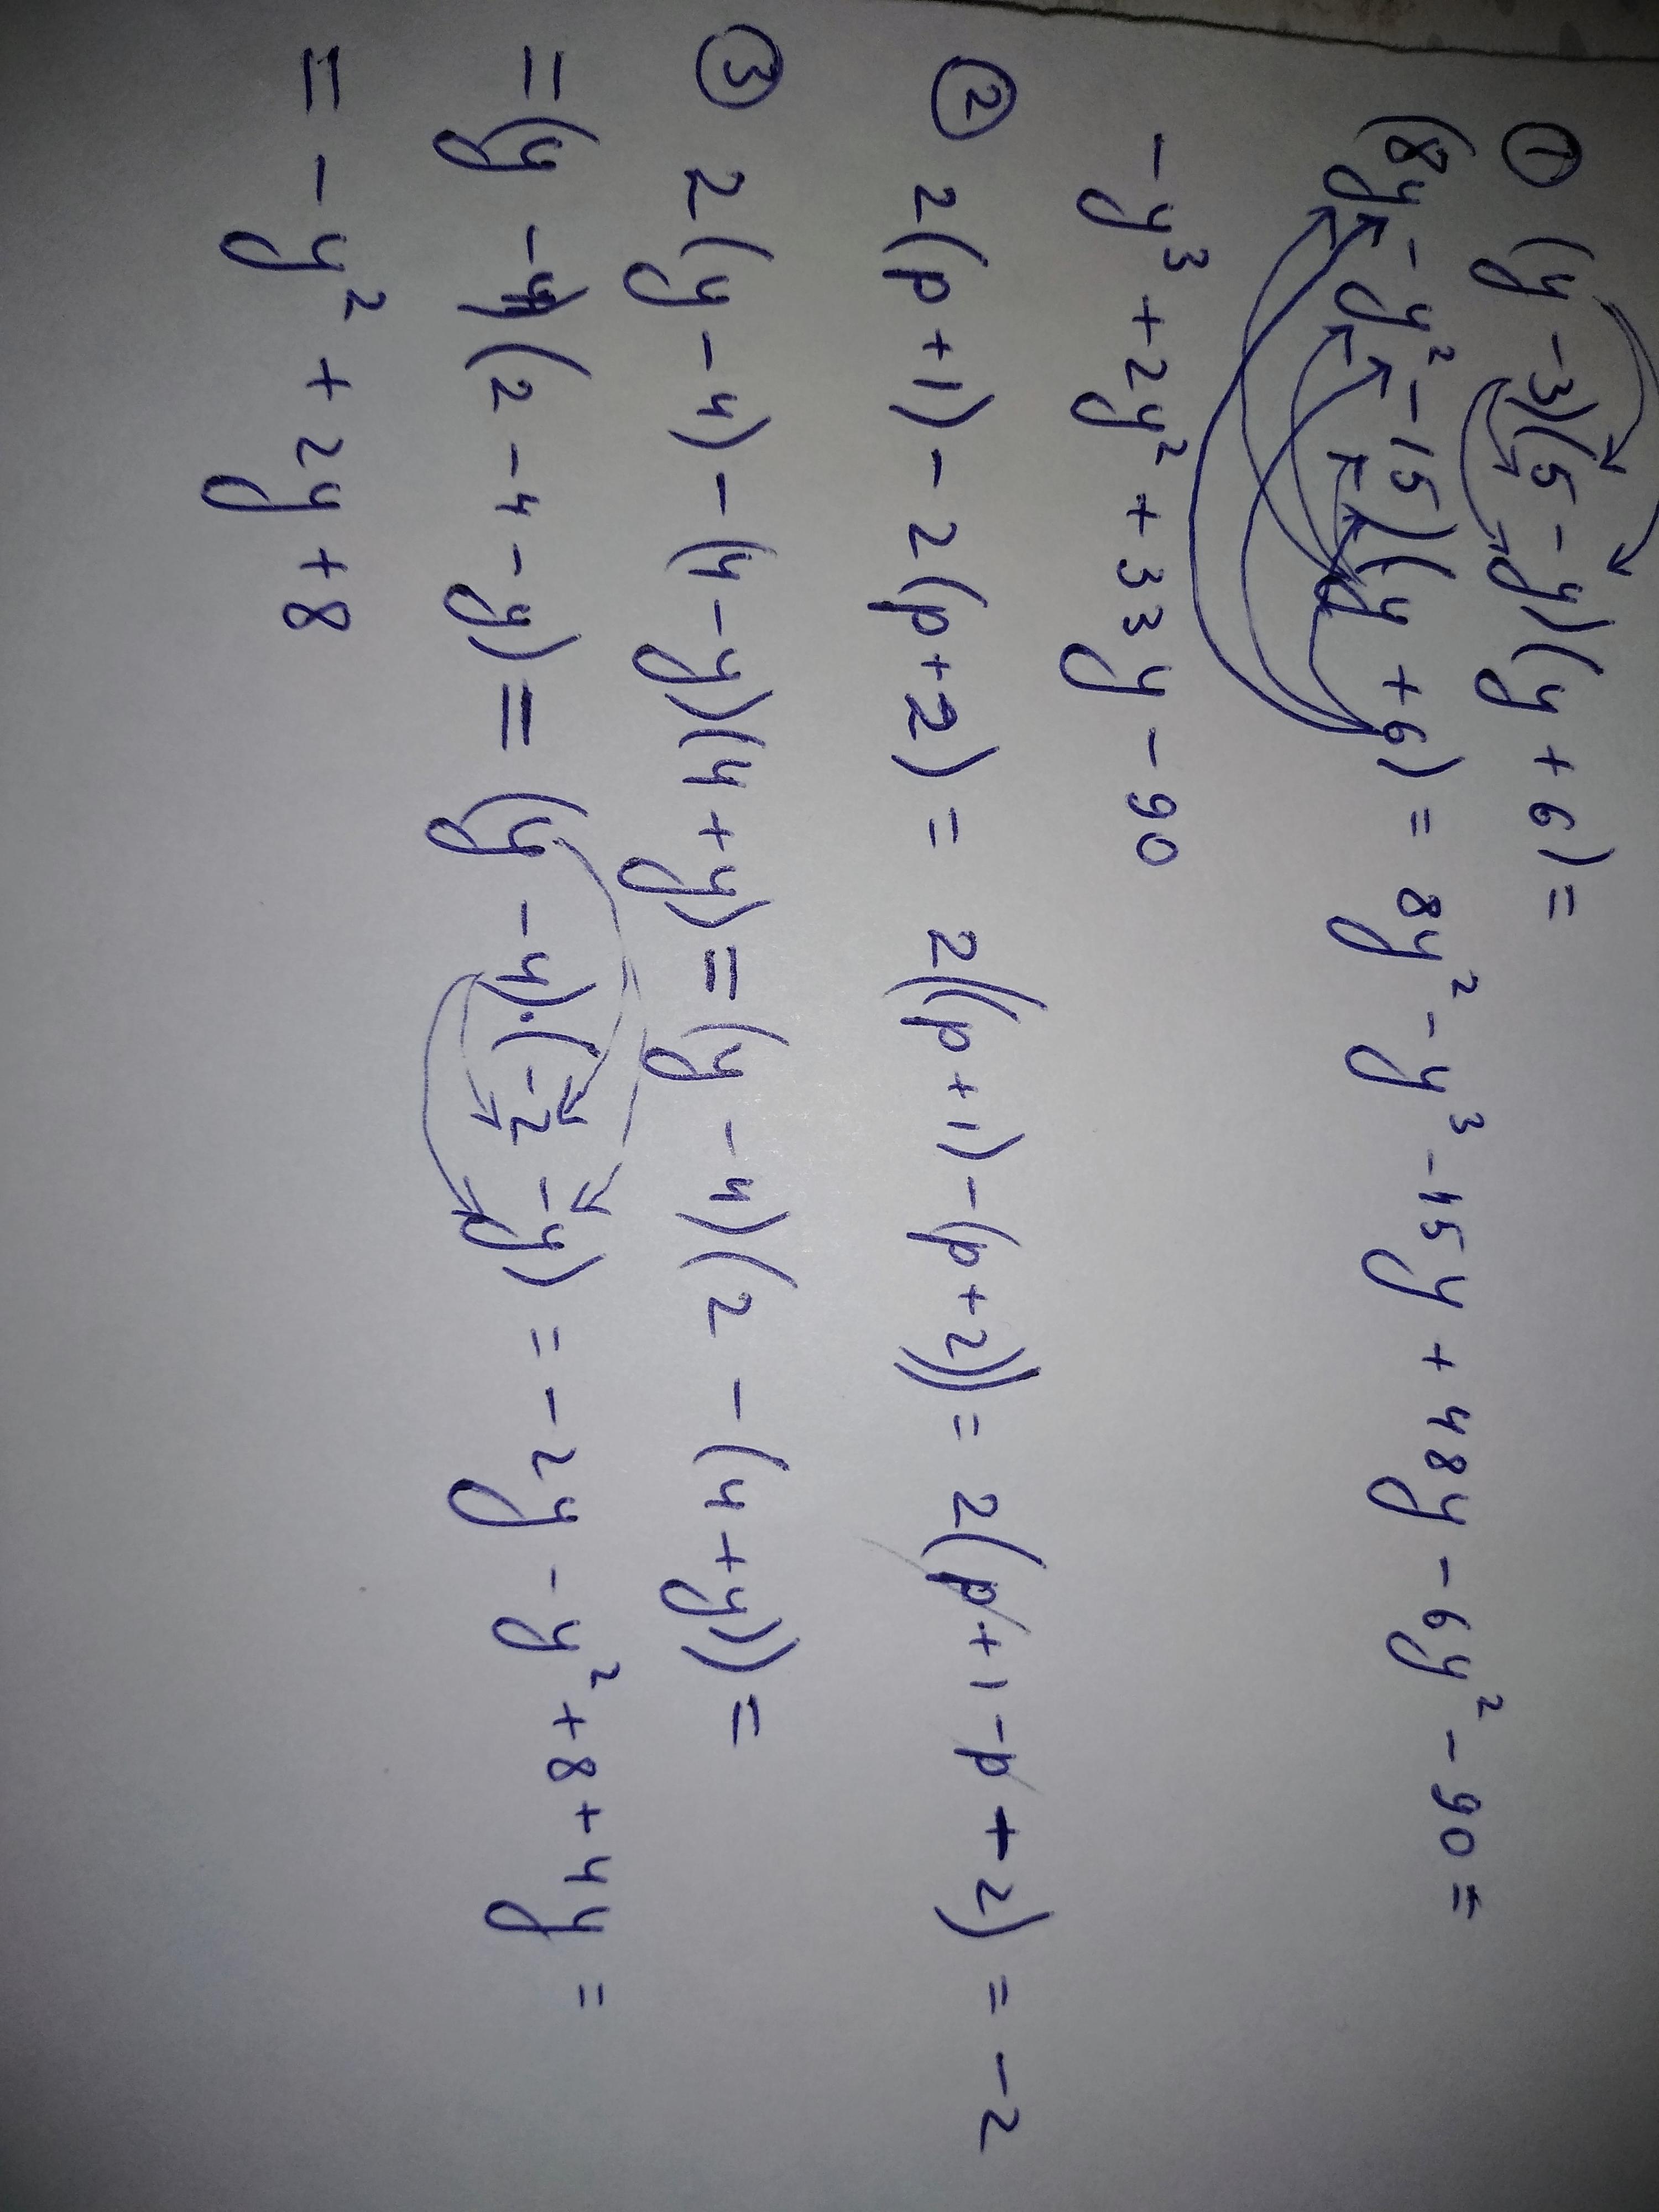 ① (y - 3)(5 - y)(y + 6) =
(8y - y² - 15)(y + 6) = 8y² - y³ - 15y + 48y - 6y² - 90 =
- y³ + 2y² + 33y - 90
② 2(p + 1) - 2(p + 2) = 2((p + 1) - (p + 2)) = 2(p + 1 - p + 2) = - 2
③ 2(y - 4) - (4 - y)(4 + y) = (y - 4)(2 - (4 + y)) =
= (y - 4)(2 - 4 - y) = (y - 4)·(-2 - y) = - 2y - y² + 8 + 4y =
= - y² + 2y + 8